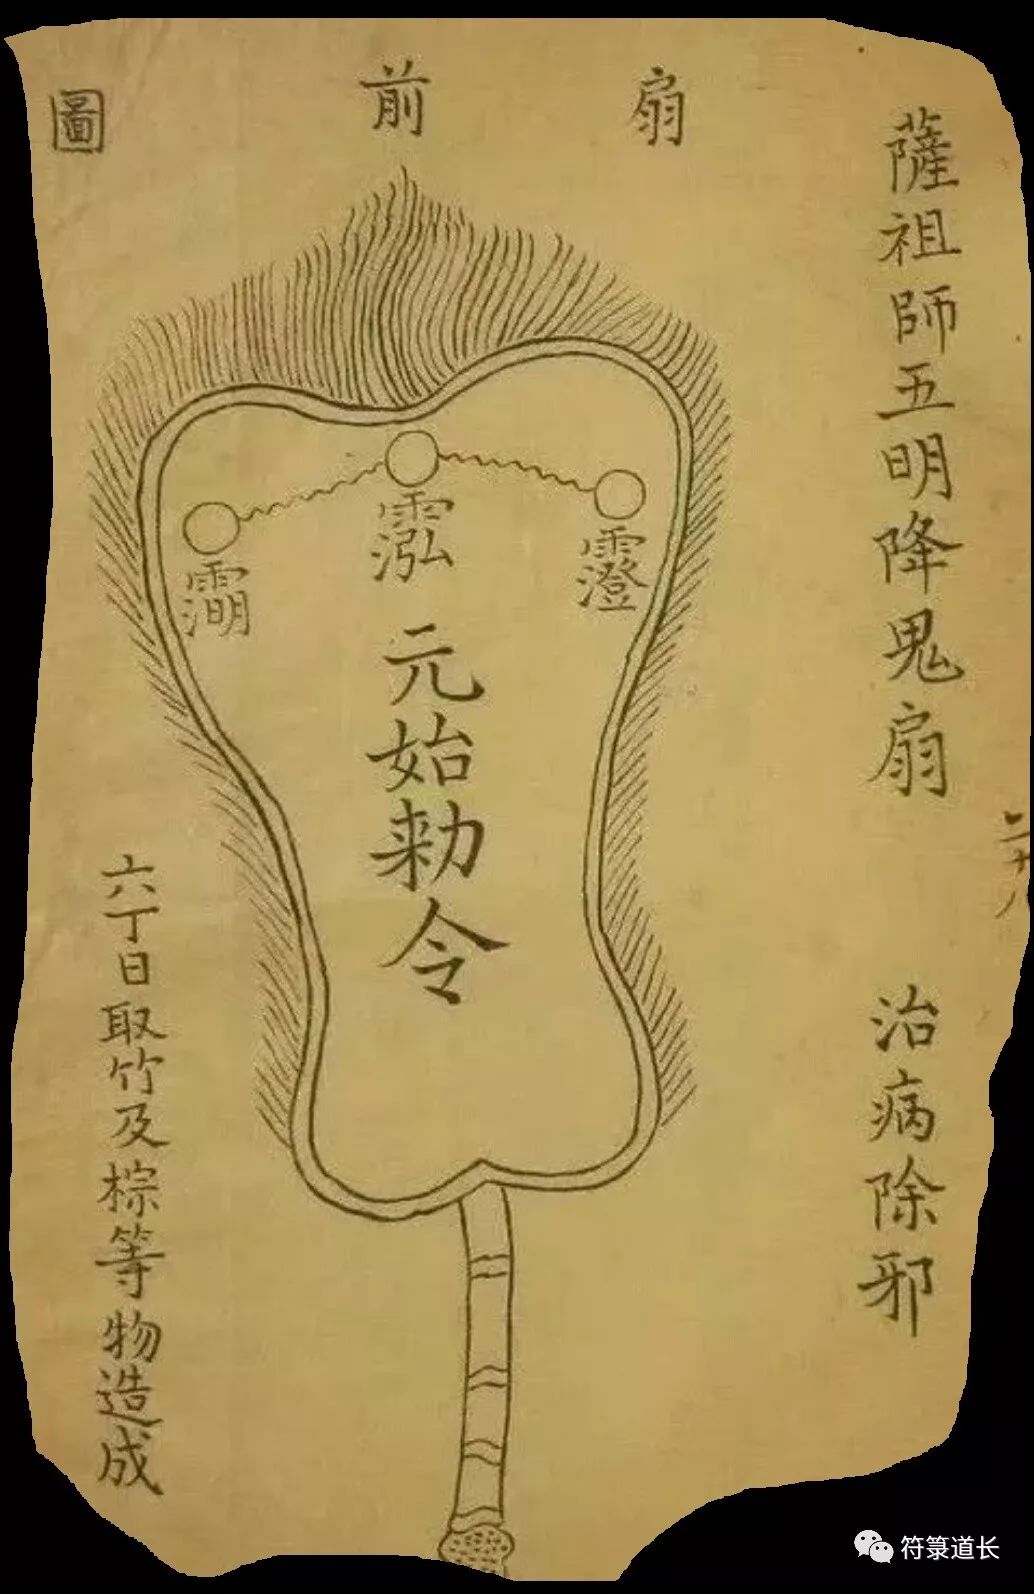 薩祖師五明降鬼扇 治病除邪
二十八
扇前圖
元始勅令
六丁日取竹及棕等物造成
符箓道长